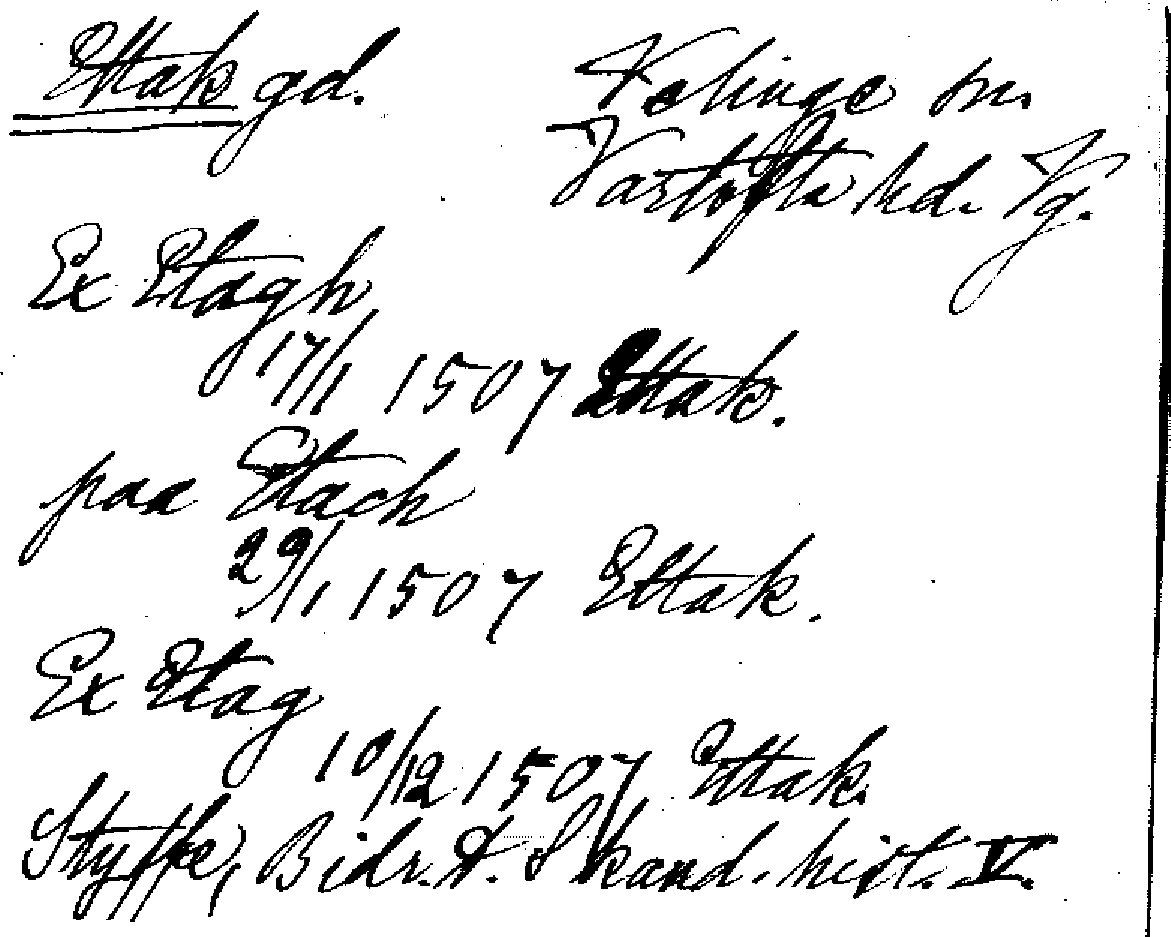 Ettak gd.
Velinge sn.
Vartofta hd. Vg.
Ex Etagh
17/1 1507 Ettak.
paa Etach
29/1 1507 Ettak.
Ex Etag
10/12 1507 Ettak.
Styffe, Bidr. t. Skand. hist. V.